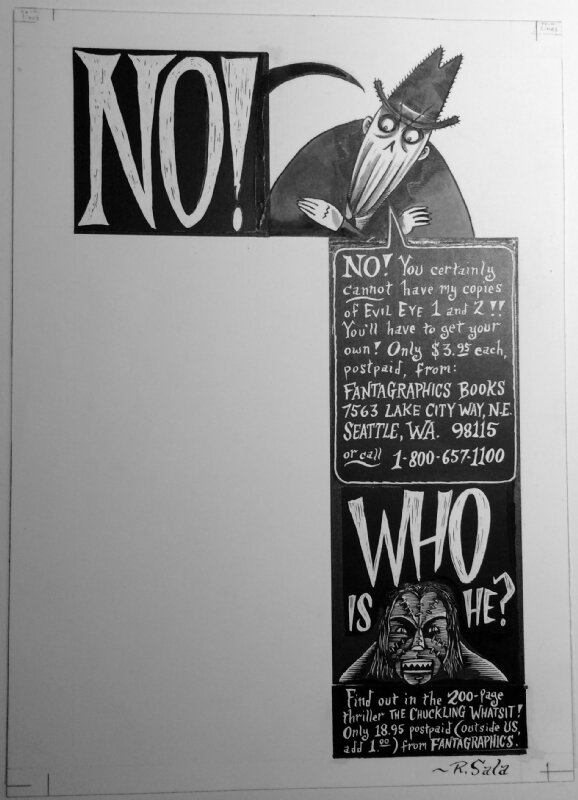 NO!
NO! You certainly
cannot have my copies
of EVIL EYE 1 and 2!!
You'll have to get your
own! Only $3.95 each,
postpaid, from:
FANTAGRAPHICS BOOKS
7563 LAKE CITY WAY, N.E.
SEATTLE, WA. 98115
or call 1-800-657-1100
WHO
IS HE?
Find out in the 200-page
thriller THE CHUCKLING WHATSIT!
Only 18.95 postpaid (outside US,
add 1.00) from FANTAGRAPHICS.
~R. Sala